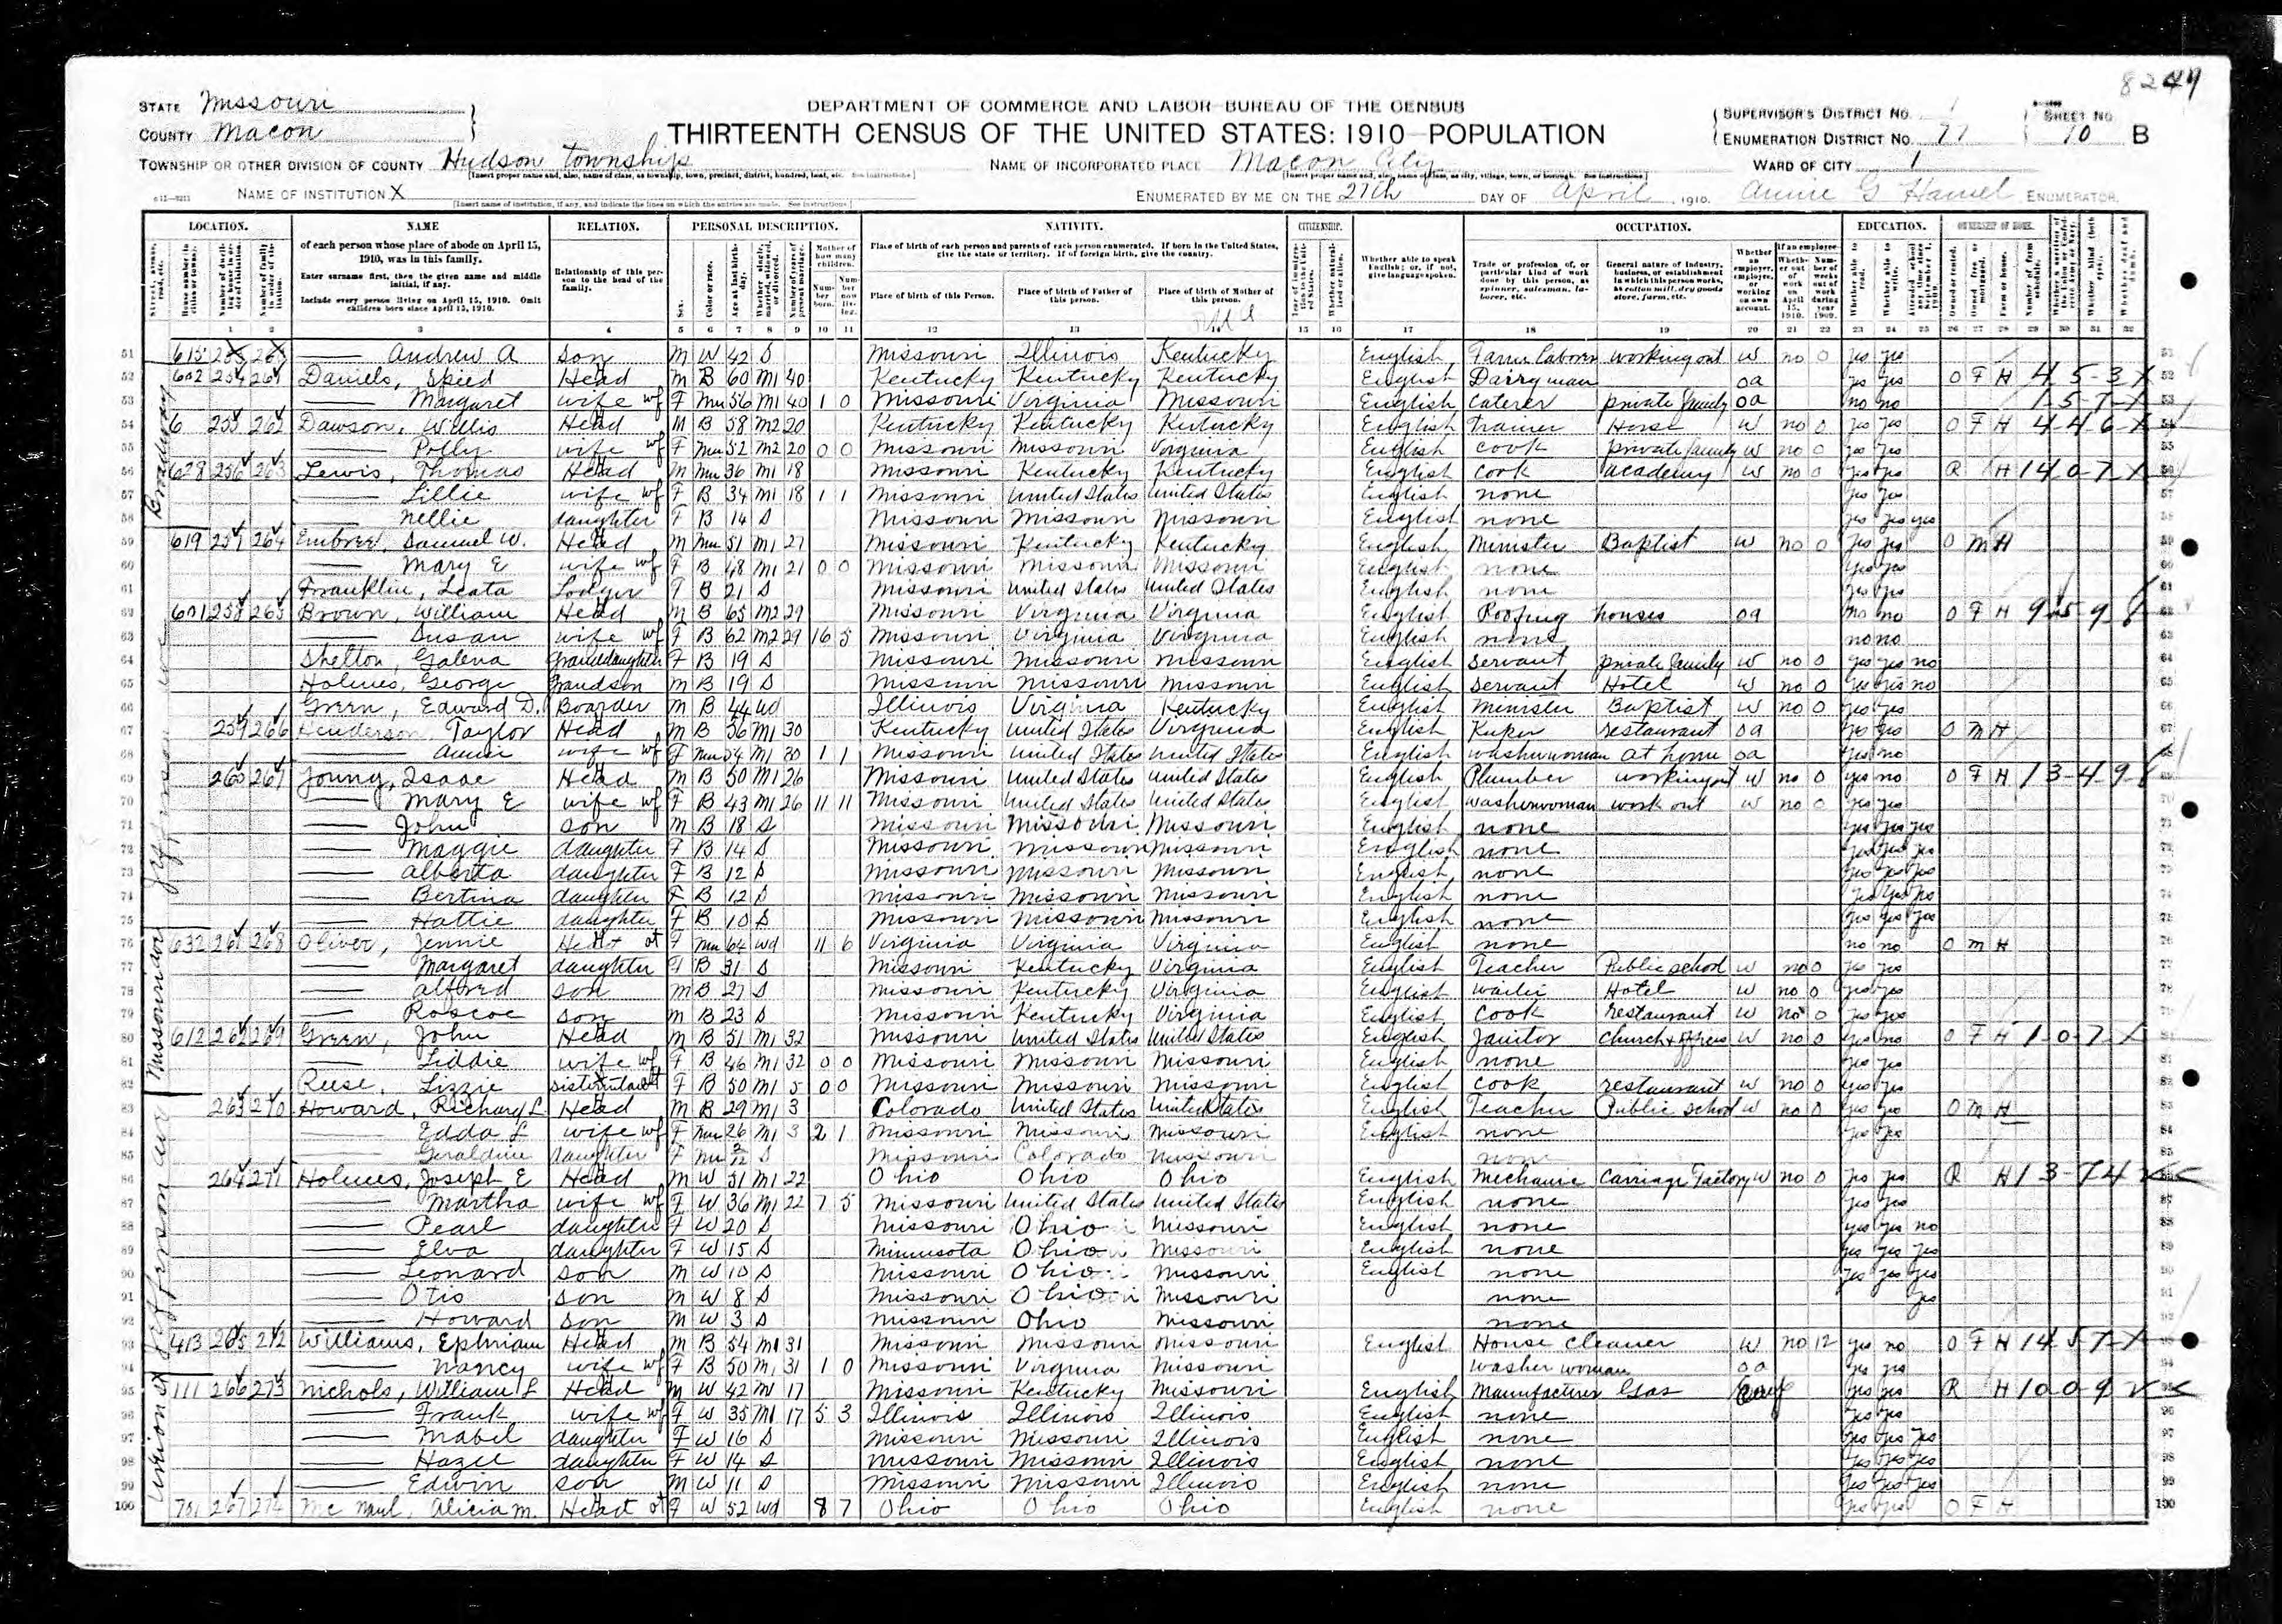 8249
STATE Missouri
COUNTY Macon
DEPARTMENT OF COMMERCE AND LABOR-BUREAU OF THE CENSUS
THIRTEENTH CENSUS OF THE UNITED STATES: 1910-POPULATION
SUPERVISOR'S DISTRICT No. 1
ENUMERATION DISTRICT No. 77
SHEET No. 10 B
TOWNSHIP OR OTHER DIVISION OF COUNTY Hudson Township
NAME OF INCORPORATED PLACE Macon City
WARD OF CITY 1
NAME OF INSTITUTION X
ENUMERATED BY ME ON THE 27th DAY OF April, 1910. Annie G Hamel ENUMERATOR.
LOCATION. NAME RELATION. PERSONAL DESCRIPTION. NATIVITY. CITIZENSHIP. OCCUPATION. EDUCATION. OWNERSHIP OF HOME.
of each person whose place of abode on April 15, 1910, was in this family.
Enter surname first, then the given name and middle initial, if any.
Include every person living on April 15, 1910. Omit children born since April 15, 1910.
Relationship of this person to the head of the family.
Place of birth of each person and parents of each person enumerated. If born in the United States, give the state or territory. If of foreign birth, give the country.
Place of birth of this Person. Place of birth of Father of this person. Place of birth of Mother of this person.
Whether able to speak English; or, if not, give language spoken.
Trade or profession of, or particular kind of work done by this person, as spinner, salesman, laborer, etc.
General nature of industry, business, or establishment in which this person works, as cotton mill, dry goods store, farm, etc.
1 2 3 4 5 6 7 8 9 10 11 12 13 14 15 16 17 18 19 20 21 22 23 24 25 26 27 28 29 30 31 32
51 615 Andrew A Son M W 42 S Missouri Illinois Kentucky English Farm laborer working out W no 0 yes yes
52 602 254 261 Daniels, Speed Head M B 60 M1 40 Kentucky Kentucky Kentucky English Dairyman oa yes yes O F H 4 5-3 X
53 Margaret wife F Mu 56 M1 40 1 0 Missouri Virginia Missouri English Caterer private family oa no no 1-5-7-X
54 6 255 262 Dawson, Willis Head M B 58 M2 20 Kentucky Kentucky Kentucky English Trainer Horse W no 0 yes yes O F H 4-4 6-X
55 Polly wife F Mu 52 M2 20 0 0 Missouri Missouri Virginia English Cook private family W no 0 yes yes
56 628 256 263 Lewis, Thomas Head M Mu 36 M1 18 Missouri Kentucky Kentucky English Cook academy W no 0 yes yes R H 14 0-7 X
57 Lillie wife F B 34 M1 18 1 1 Missouri United States United States English none yes yes
58 Nellie daughter F B 14 S Missouri Missouri Missouri English none yes yes yes
59 619 257 264 Embree, Samuel W. Head M Mu 51 M1 27 Missouri Kentucky Kentucky English Minister Baptist W no 0 yes yes O M H
60 Mary E wife F B 48 M1 21 0 0 Missouri Missouri Missouri English none yes yes
61 Franklin, Leata Lodger F B 21 S Missouri United States United States English none yes yes
62 601 258 265 Brown, William Head M B 65 M2 29 Missouri Virginia Virginia English Roofing houses oa no no O F H 9-5-9 8
63 Susan wife F B 62 M2 29 16 5 Missouri Virginia Virginia English none no no
64 Shelton, Galena Granddaughter F B 19 S Missouri Missouri Missouri English Servant private family W no 0 yes yes no
65 Holmes, George Grandson M B 19 S Missouri Missouri Missouri English Servant Hotel W no 0 yes yes no
66 Green, Edward D. Boarder M B 44 Wd Illinois Virginia Kentucky English Minister Baptist W no 0 yes yes
67 259 266 Henderson, Taylor Head M B 56 M1 30 Kentucky United States Virginia English Keeper restaurant oa yes yes O M H
68 Annie wife F Mu 54 M1 30 1 1 Missouri United States United States English washerwoman at home oa yes no
69 260 267 Young, Isaac Head M B 50 M1 26 Missouri United States United States English Plumber working out W no 0 yes no O F H 1 3-4-9 8
70 Mary E wife F B 43 M1 26 11 11 Missouri United States United States English washerwoman work out W no 0 yes yes
71 John son M B 18 S Missouri Missouri Missouri English none yes yes yes
72 Maggie daughter F B 14 S Missouri Missouri Missouri English none yes yes yes
73 Alberta daughter F B 12 S Missouri Missouri Missouri English none yes yes yes
74 Bertina daughter F B 12 S Missouri Missouri Missouri English none yes yes yes
75 Hattie daughter F B 10 S Missouri Missouri Missouri English none yes yes yes
76 632 261 268 Oliver, Jennie Head F Mu 64 Wd 11 6 Virginia Virginia Virginia English none no no O M H
77 Margaret daughter F B 31 S Missouri Kentucky Virginia English Teacher Public school W no 0 yes yes
78 Alfred son M B 27 S Missouri Kentucky Virginia English Waiter Hotel W no 0 yes yes
79 Roscoe son M B 23 S Missouri Kentucky Virginia English Cook restaurant W no 0 yes yes
80 612 262 269 Green, John Head M B 51 M1 32 Missouri United States United States English Janitor Church & offices W no 0 yes no O F H 1-0-7-X
81 Liddie wife F B 46 M1 32 0 0 Missouri Missouri Missouri English none yes yes
82 Reese, Lizzie Sisterinlaw F B 50 M1 5 0 0 Missouri Missouri Missouri English Cook restaurant W no 0 yes yes
83 263 270 Howard, Richard L Head M B 29 M1 3 Colorado United States United States English Teacher Public school W no 0 yes yes O M H
84 Edda L wife F Mu 26 M1 3 2 1 Missouri Missouri Missouri English none yes yes
85 Geraldine daughter F Mu S Missouri Colorado Missouri none
86 264 271 Holmes, Joseph E Head M W 51 M1 22 Ohio Ohio Ohio English Mechanic Carriage Factory W no 0 yes yes R H 1 3-7 4
87 Martha wife F W 36 M1 22 7 5 Missouri United States United States English none yes yes
88 Pearl daughter F W 20 S Missouri Ohio Missouri English none yes yes no
89 Elva daughter F W 15 S Minnesota Ohio Missouri English none yes yes yes
90 Leonard son M W 10 S Missouri Ohio Missouri English none yes yes yes
91 Otis son M W 8 S Missouri Ohio Missouri none yes
92 Howard son M W 3 S Missouri Ohio Missouri none
93 413 265 272 Williams, Ephriam Head M B 54 M1 31 Missouri Missouri Missouri English House cleaner W no 12 yes no O F H 14 5 7-X
94 Nancy wife F B 50 M1 31 1 0 Missouri Virginia Missouri washer woman oa yes yes
95 111 266 273 Nichols, William L Head M W 42 M 17 Missouri Kentucky Missouri English Manufacturer Gas yes yes R H 10-0-9
96 Frank wife F W 35 M1 17 5 3 Illinois Illinois Illinois English none yes yes
97 Mabel daughter F W 16 S Missouri Missouri Illinois English none yes yes yes
98 Hazel daughter F W 14 S Missouri Missouri Illinois English none yes yes yes
99 Edwin son M W 11 S Missouri Missouri Illinois English none yes yes yes
100 751 267 274 Alicia M. Head F W 52 Wd 8 7 Ohio Ohio Ohio English none yes yes O F H
Broadway
Jefferson ave
Missouri ave
Jefferson ave
Union st